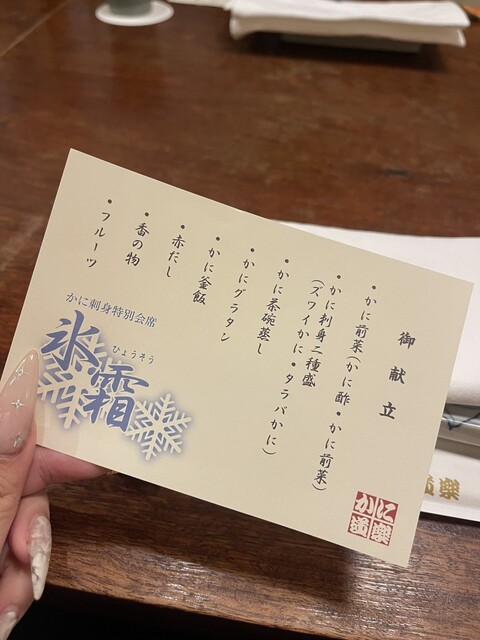 御献立
・かに前菜(かに酢・かに前菜)
・かに刺身二種盛
(ズワイかに・タラバかに)
・かに茶碗蒸し
・かにグラタン
・かに釜飯
・赤だし
・香の物
・フルーツ
かに刺身特別会席
氷霜
ひょうそう
かに道楽